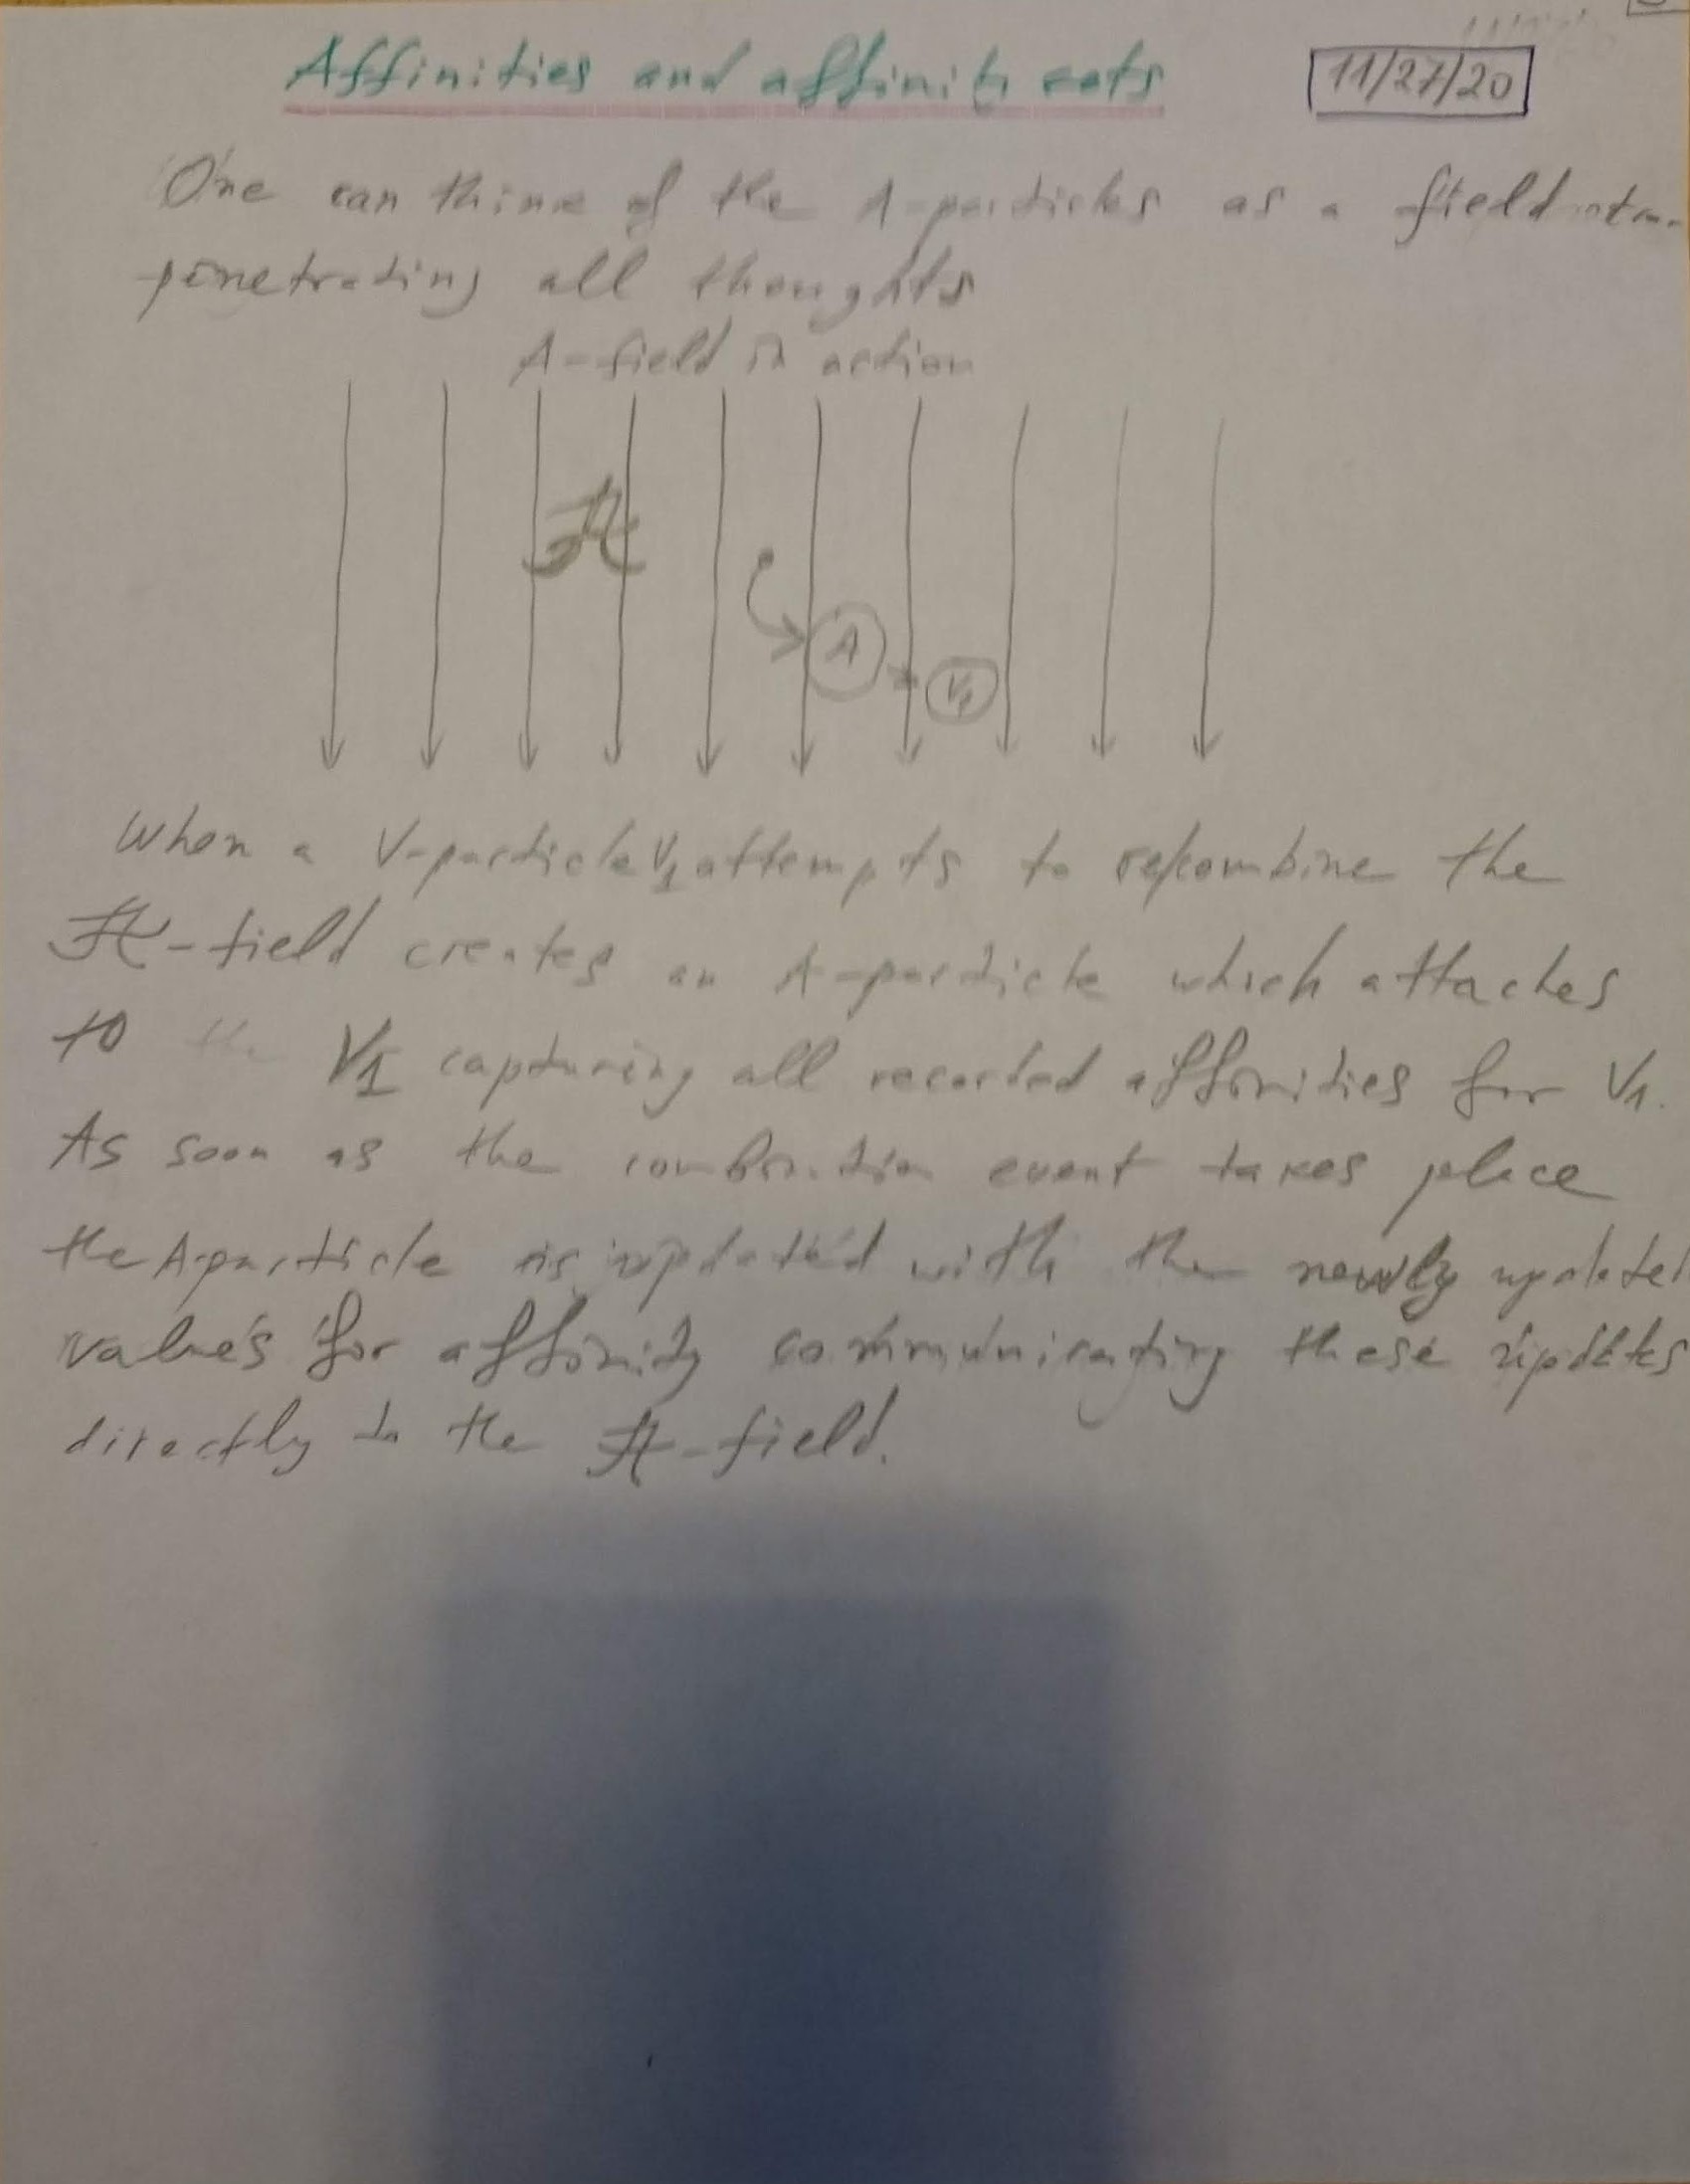 Affinities and affinity sets
11/27/20
One can think of the A-particles as a field inter-
penetrating all thoughts
A-field in action
A
A
V1
When a V-particle V1 attempts to recombine the
A-field creates an A-particle which attaches
to the V1 capturing all recorded affinities for V1.
As soon as the combination event takes place
the A-particle is updated with the newly updated
values for affinity communicating these updates
directly to the A-field.